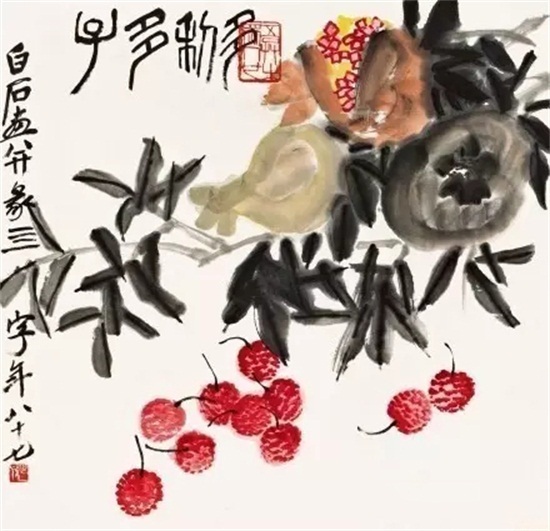 多利多子
白石畫并篆亖字年八十七